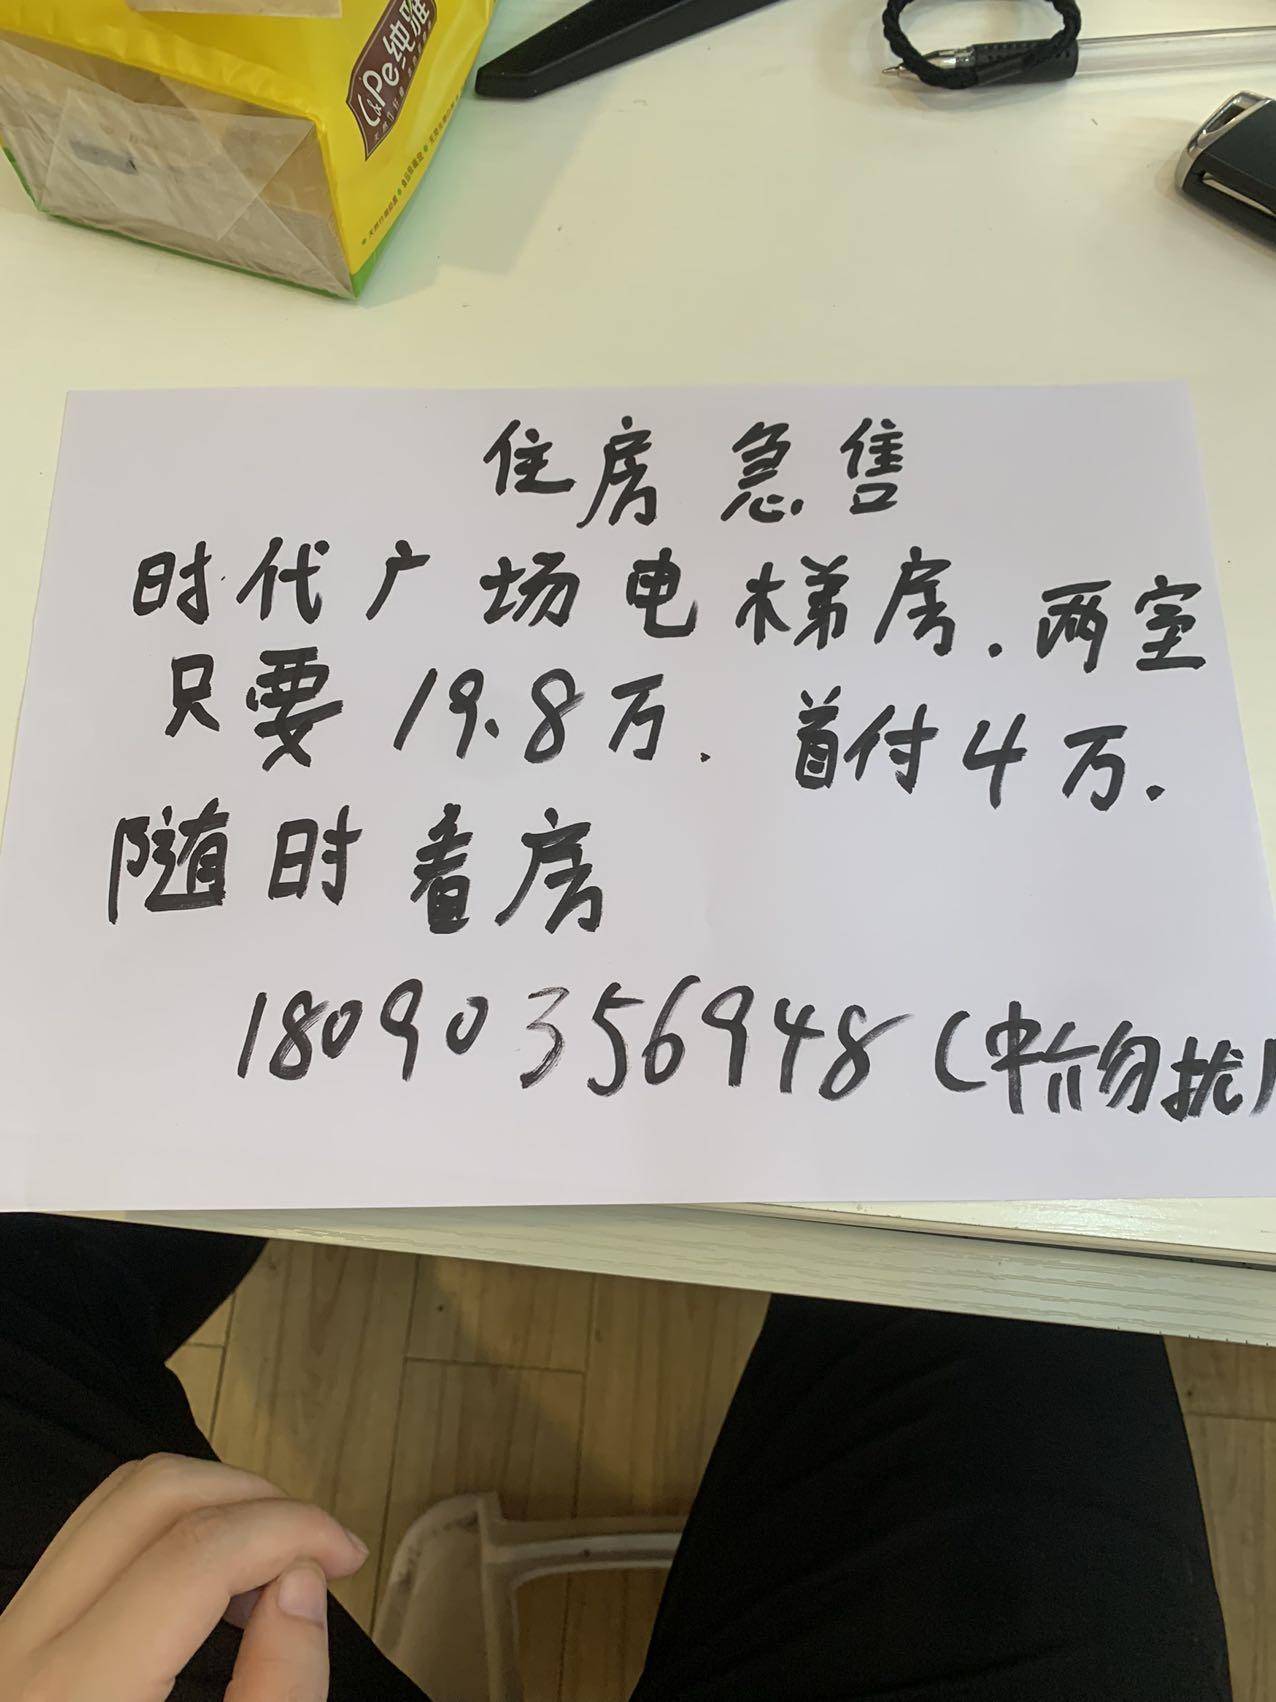 C&Pe纯雅
住房急售
时代广场电梯房.两室
只要19.8万.首付4万.
随时看房
18090356948(中介勿扰)